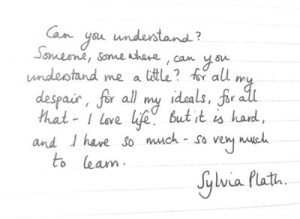 Can you understand?
Someone, somewhere, can you
understand me a little? For all my
despair, for all my ideals, for all
that - I love life. But it is hard,
and I have so much - so very much
to learn.
Sylvia Plath.